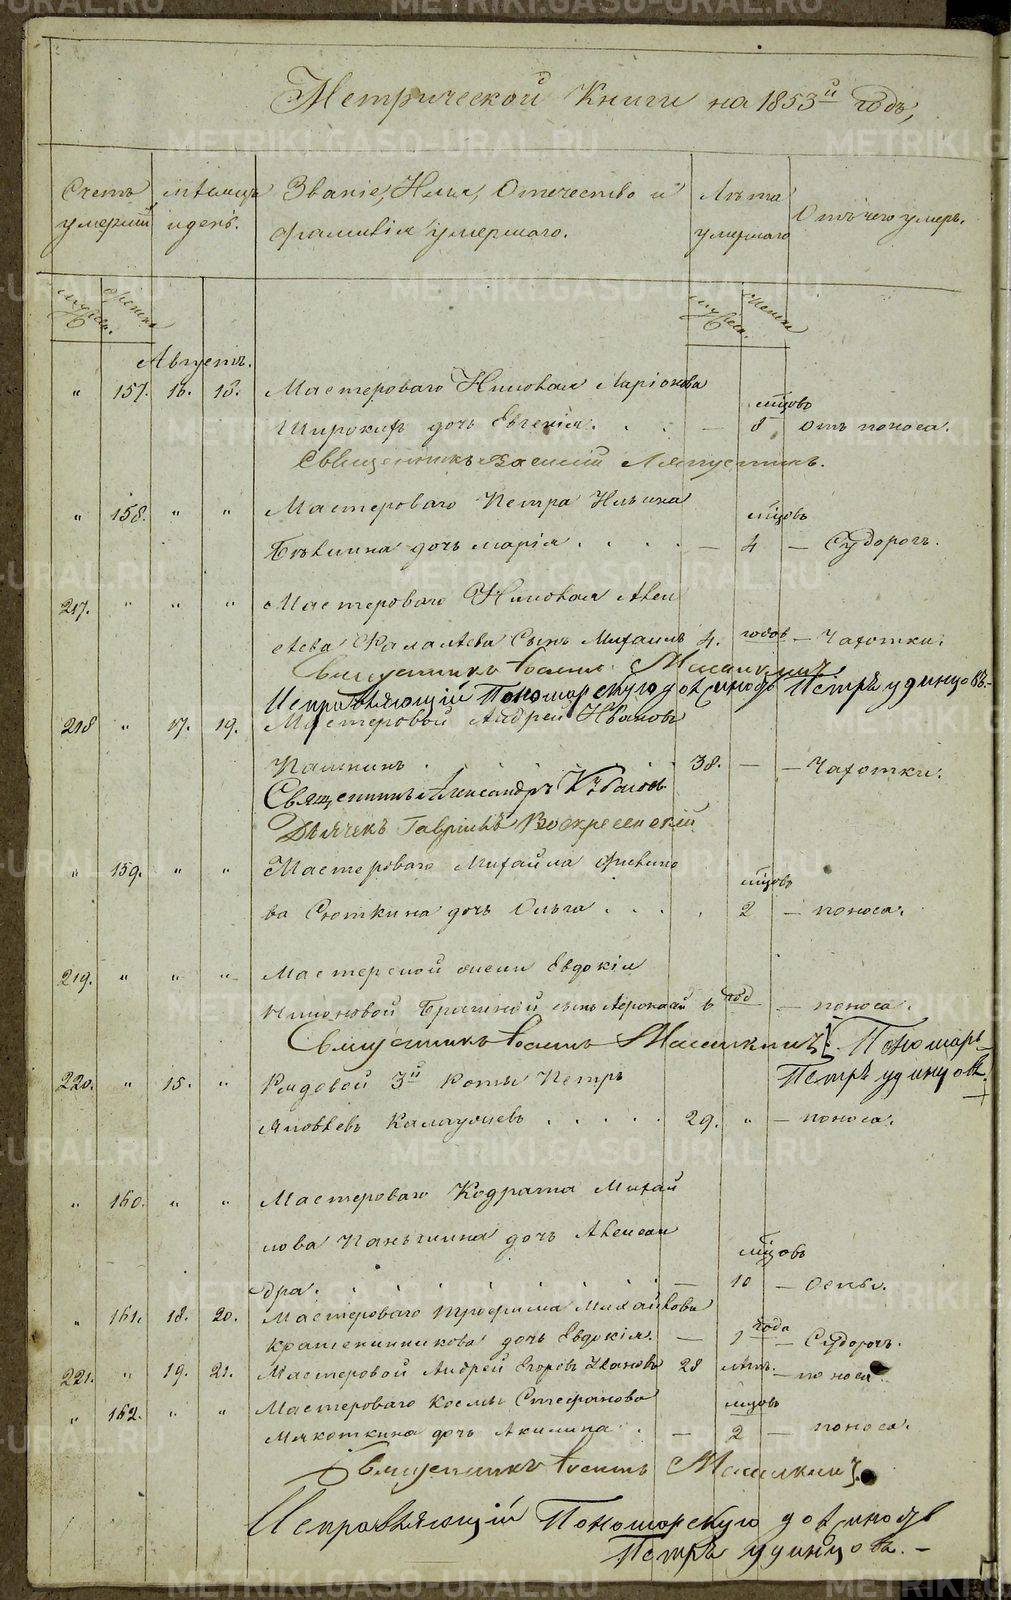 Метрической Книги на 1853й годъ,
Счетъ умершихъ
мѣсяцъ и день.
Званіе, Имя, Отчество и фамилія умершаго.
Лѣта умершаго
Отъ чего умеръ.
мужеск. женска
мужеск. женска
Августъ.
" 157. 16. 18. Мастероваго Николая Ларіонова
мцовъ
Широкихъ дочь Евгенія. . . . — 8 отъ поноса.
Священникъ Василій Ляпустинъ.
" 158. " " Мастероваго Петра Ильина
мцовъ
дочь Марія . . . . — 4 — Судорогъ.
217. " " " Мастероваго Николая Алек
сѣева Сынъ Михаилъ 4. годовъ — Чахотки.
Священникъ Іоаннъ
Исправляющій Пономарскую должность Петръ Удинцовъ.—
218 " 17. 19. Мастеровой Андрей Ивановъ
Пашкинъ . 38. — — Чахотки.
Священникъ Александръ
Дьячекъ Гавріилъ Воскресенскій
" 159. " " Мастероваго Михаила Филипо
мцовъ
ва Сюткина дочь Ольга . . . . 2 — поноса.
219. " " " Мастерской жены Евдокіи
сынъ год — поноса.
Священникъ Іоаннъ Пономарь
Петръ Удинцовъ.
220. " 15. " Рядовой 3й роты Петръ
Яковлевъ . . . . . 29. " — поноса.
" 160. " " Мастероваго Кодрата Михай
лова Паньшина дочь Алексан
мцовъ
дра. . . . . . — 10 — Оспы.
" 161. 18. 20. Мастероваго Трофима Михайлова
года
Крашенинникова дочь Евдокія. — — Судорогъ.
221. " 19. 21. Мастеровой Андрей Егоровъ Ивановъ 28 лѣтъ. — поноса.
" 162. " " Мастероваго Косьмы Стефанова
мцовъ
Мякоткина дочь Акилина . — 2 — поноса.
Священникъ Іоаннъ
Исправляющій Пономарскую должность
Петръ Удинцовъ. —
METRIKI.GASO-URAL.RU